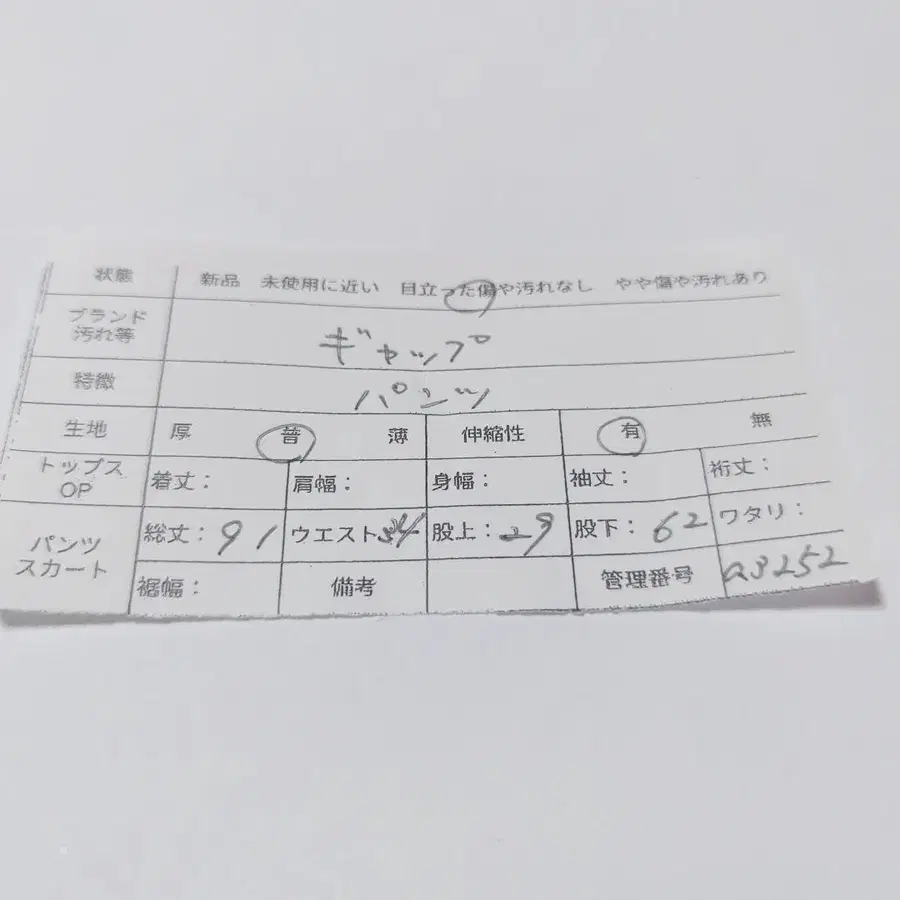 状態 新品 未使用に近い 目立った傷や汚れなし やや傷や汚れあり
ブランド
汚れ等 ギャップ
特徴 パンツ
生地 厚 普 薄 伸縮性 有 無
トップス
OP 着丈： 肩幅： 身幅： 袖丈： 裄丈：
パンツ
スカート 総丈：91 ウエスト 股上：29 股下：62 ワタリ：
裾幅： 備考 管理番号 a3252